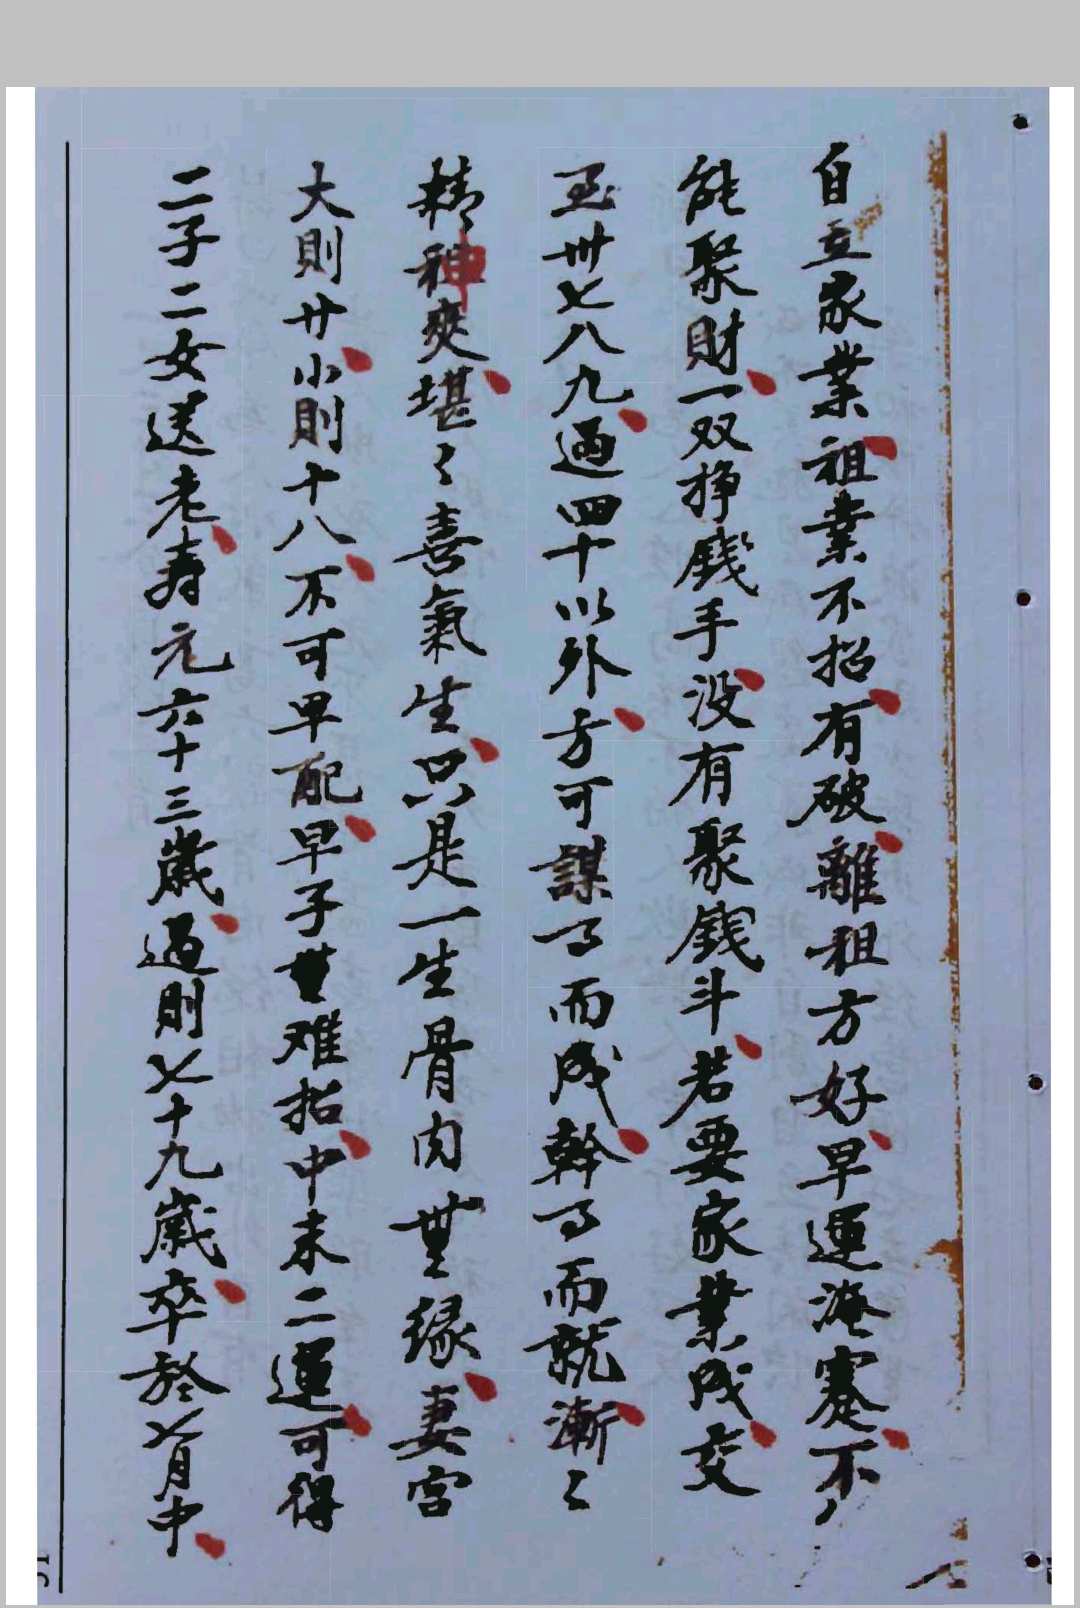 自立家業祖業不招有破離祖方好早運淹蹇不
能聚財一双掙錢手没有聚錢斗若要家業成交
至卅七八九過四十以外方可謀了而成幹了而就漸〻
精神爽堪〻喜氣生只是一生骨肉無緣妻宮
大則廿小則十八不可早配早子無难招中末二運可得
二子二女送老壽元六十三歲過則七十九歲卒於七月中